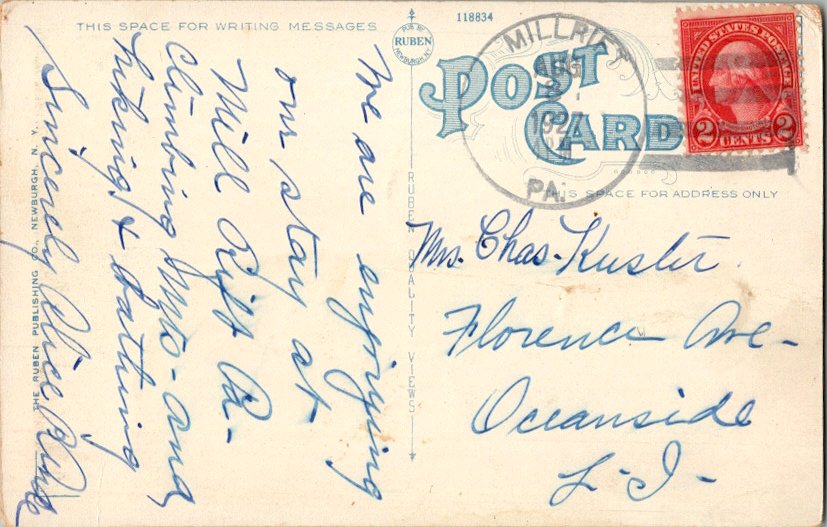 THIS SPACE FOR WRITING MESSAGES
PUB. BY
RUBEN
NEWBURGH, N.Y.
118834
POST
CARD
MILLRIFT
AUG
192
PA.
UNITED STATES POSTAGE
2 CENTS 2
THIS SPACE FOR ADDRESS ONLY
We are enjoying
our stay at
Mill Rift Pa-
Climbing Mts- and
hiking & bathing
Sincerely Alice
THE RUBEN PUBLISHING CO., NEWBURGH, N. Y.
RUBEN QUALITY VIEWS
Mrs. Chas. Kuster
Florence Ave-
Oceanside
L-I-